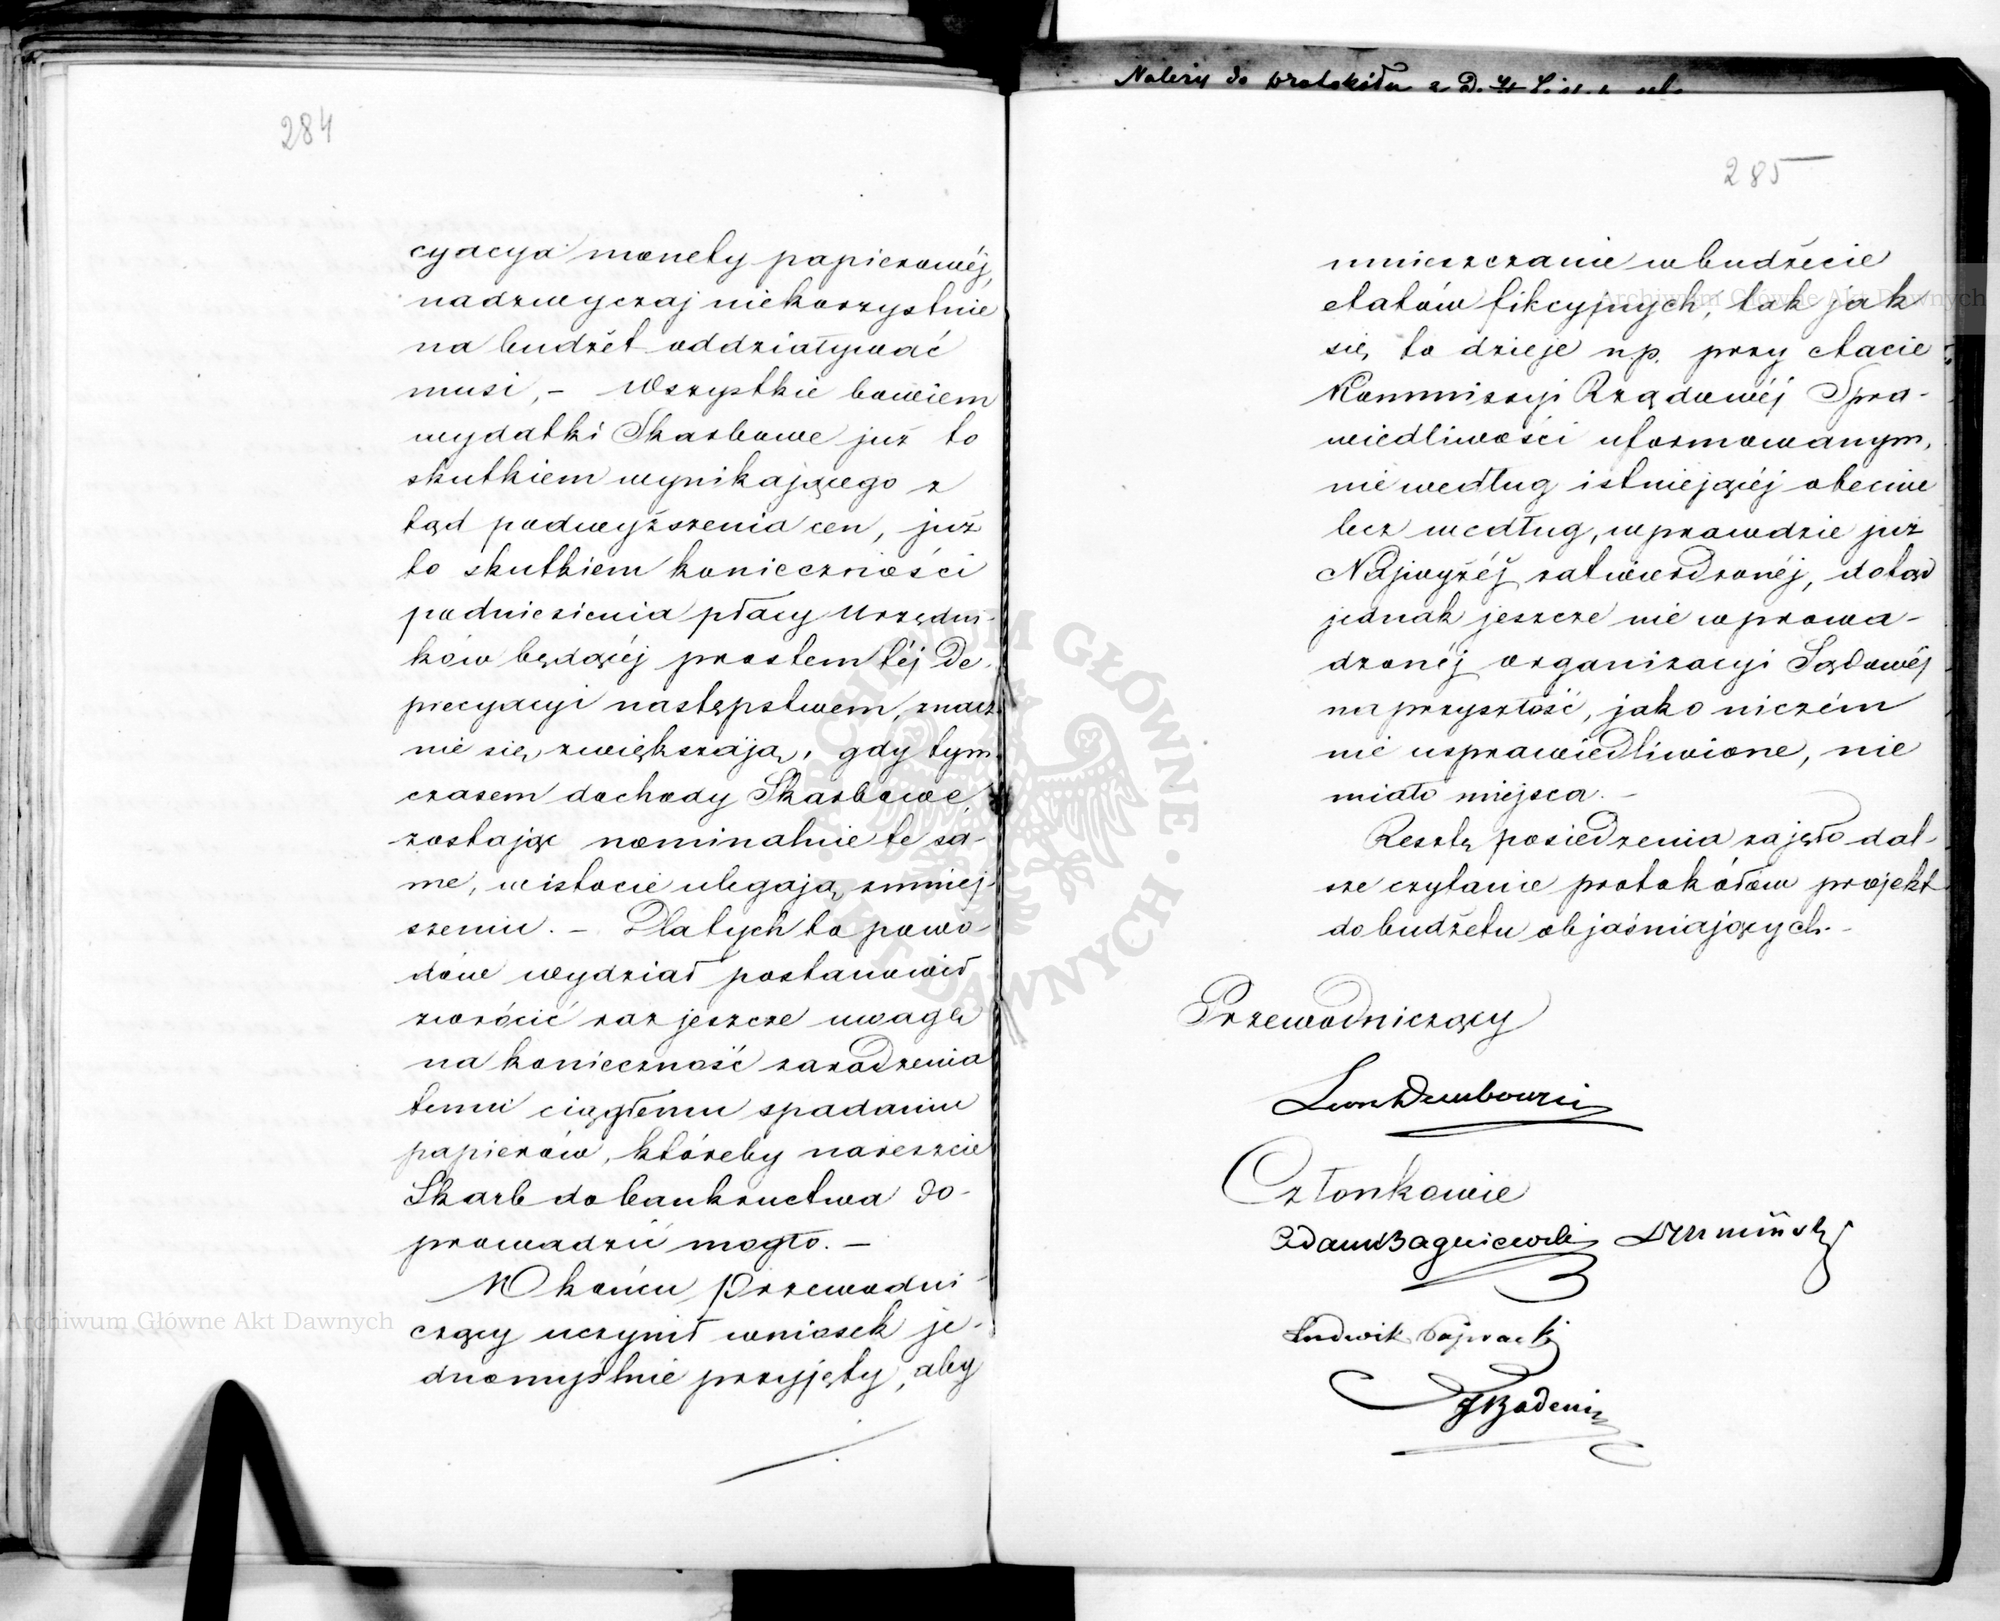 284
cyacya monety papierowéj,
nadzwyczaj niekorzystnie
na budżet oddziaływać
musi, – Wszystkie bowiem
wydatki Skarbowe już to
skutkiem wynikającego z
tąd podwyższenia cen, już
to skutkiem konieczności
podniesienia płacy Urzędni-
ków będącéj prostem téj De-
precyacyi następstwem, znacz
nie się zwiększają, gdy tym
czasem dochody Skarbowe,
zostając nominalnie te sa-
me, w istocie ulegają zmniej-
szeniu. – Dla tych to powo-
dów wydział postanowił
zwrócić raz jeszcze uwagę
na konieczność zaradzenia
temu ciągłemu spadaniu
papierów, któreby nareszcie
Skarb do bankructwa do-
prowadzić mogło. –
W końcu Przewodni-
czący uczynił wniosek je-
dnomyślnie przyjęty, aby
Należy do protokółu z D.
285
umieszczanie w budżecie
etatów fikcyjnych, tak jak
się to dzieje np. przy etacie
Kommissyi Rządowéj Spra-
wiedliwości uformowanym,
nie według istniejącéj obecnie
lecz według, wprawdzie już
Najwyżéj zatwierdzonéj, dotąd
jednak jeszcze nie wprowa-
dzonéj organizacyi Sądowéj
na przyszłość, jako niczém
nie usprawiedliwione, nie
miało miejsca. –
Resztę posiedzenia zajęło dal-
sze czytanie protokółów projekt
do budżetu objaśniających. –
Przewodniczący
Leon Dembowski
Członkowie
Adam Bagniewski
Ludwik
Badeni
Archiwum Główne Akt Dawnych
Archiwum Główne Akt Dawnych
ARCHIWUM GŁÓWNE AKT DAWNYCH